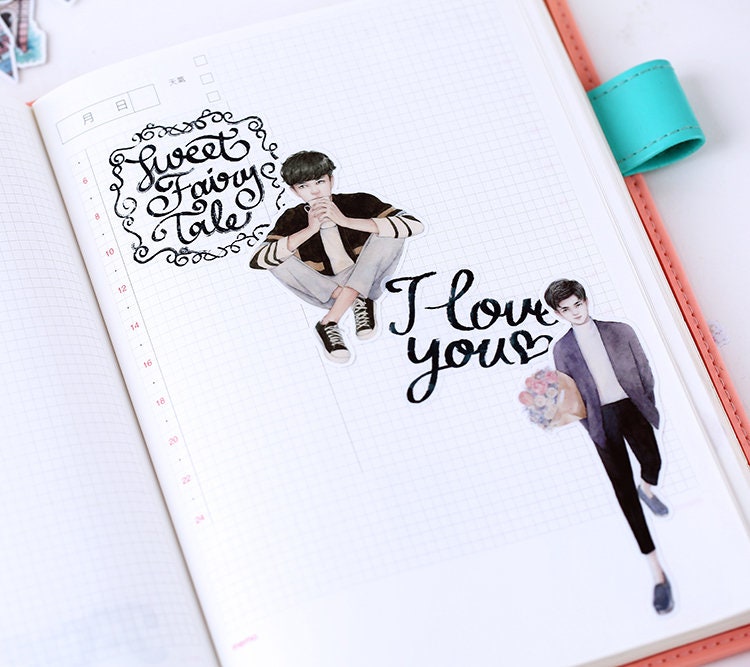 月 日
天氣
Sweet
Fairy
Tale
I love
you
6
8
10
12
14
16
18
20
22
24
memo